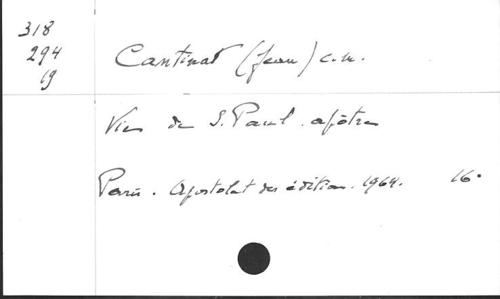 318
294
19
Cantinat (Jean) c.m.
Vie de S. Paul. apôtre
Paris. Apostolat des édition. 1964. 16°